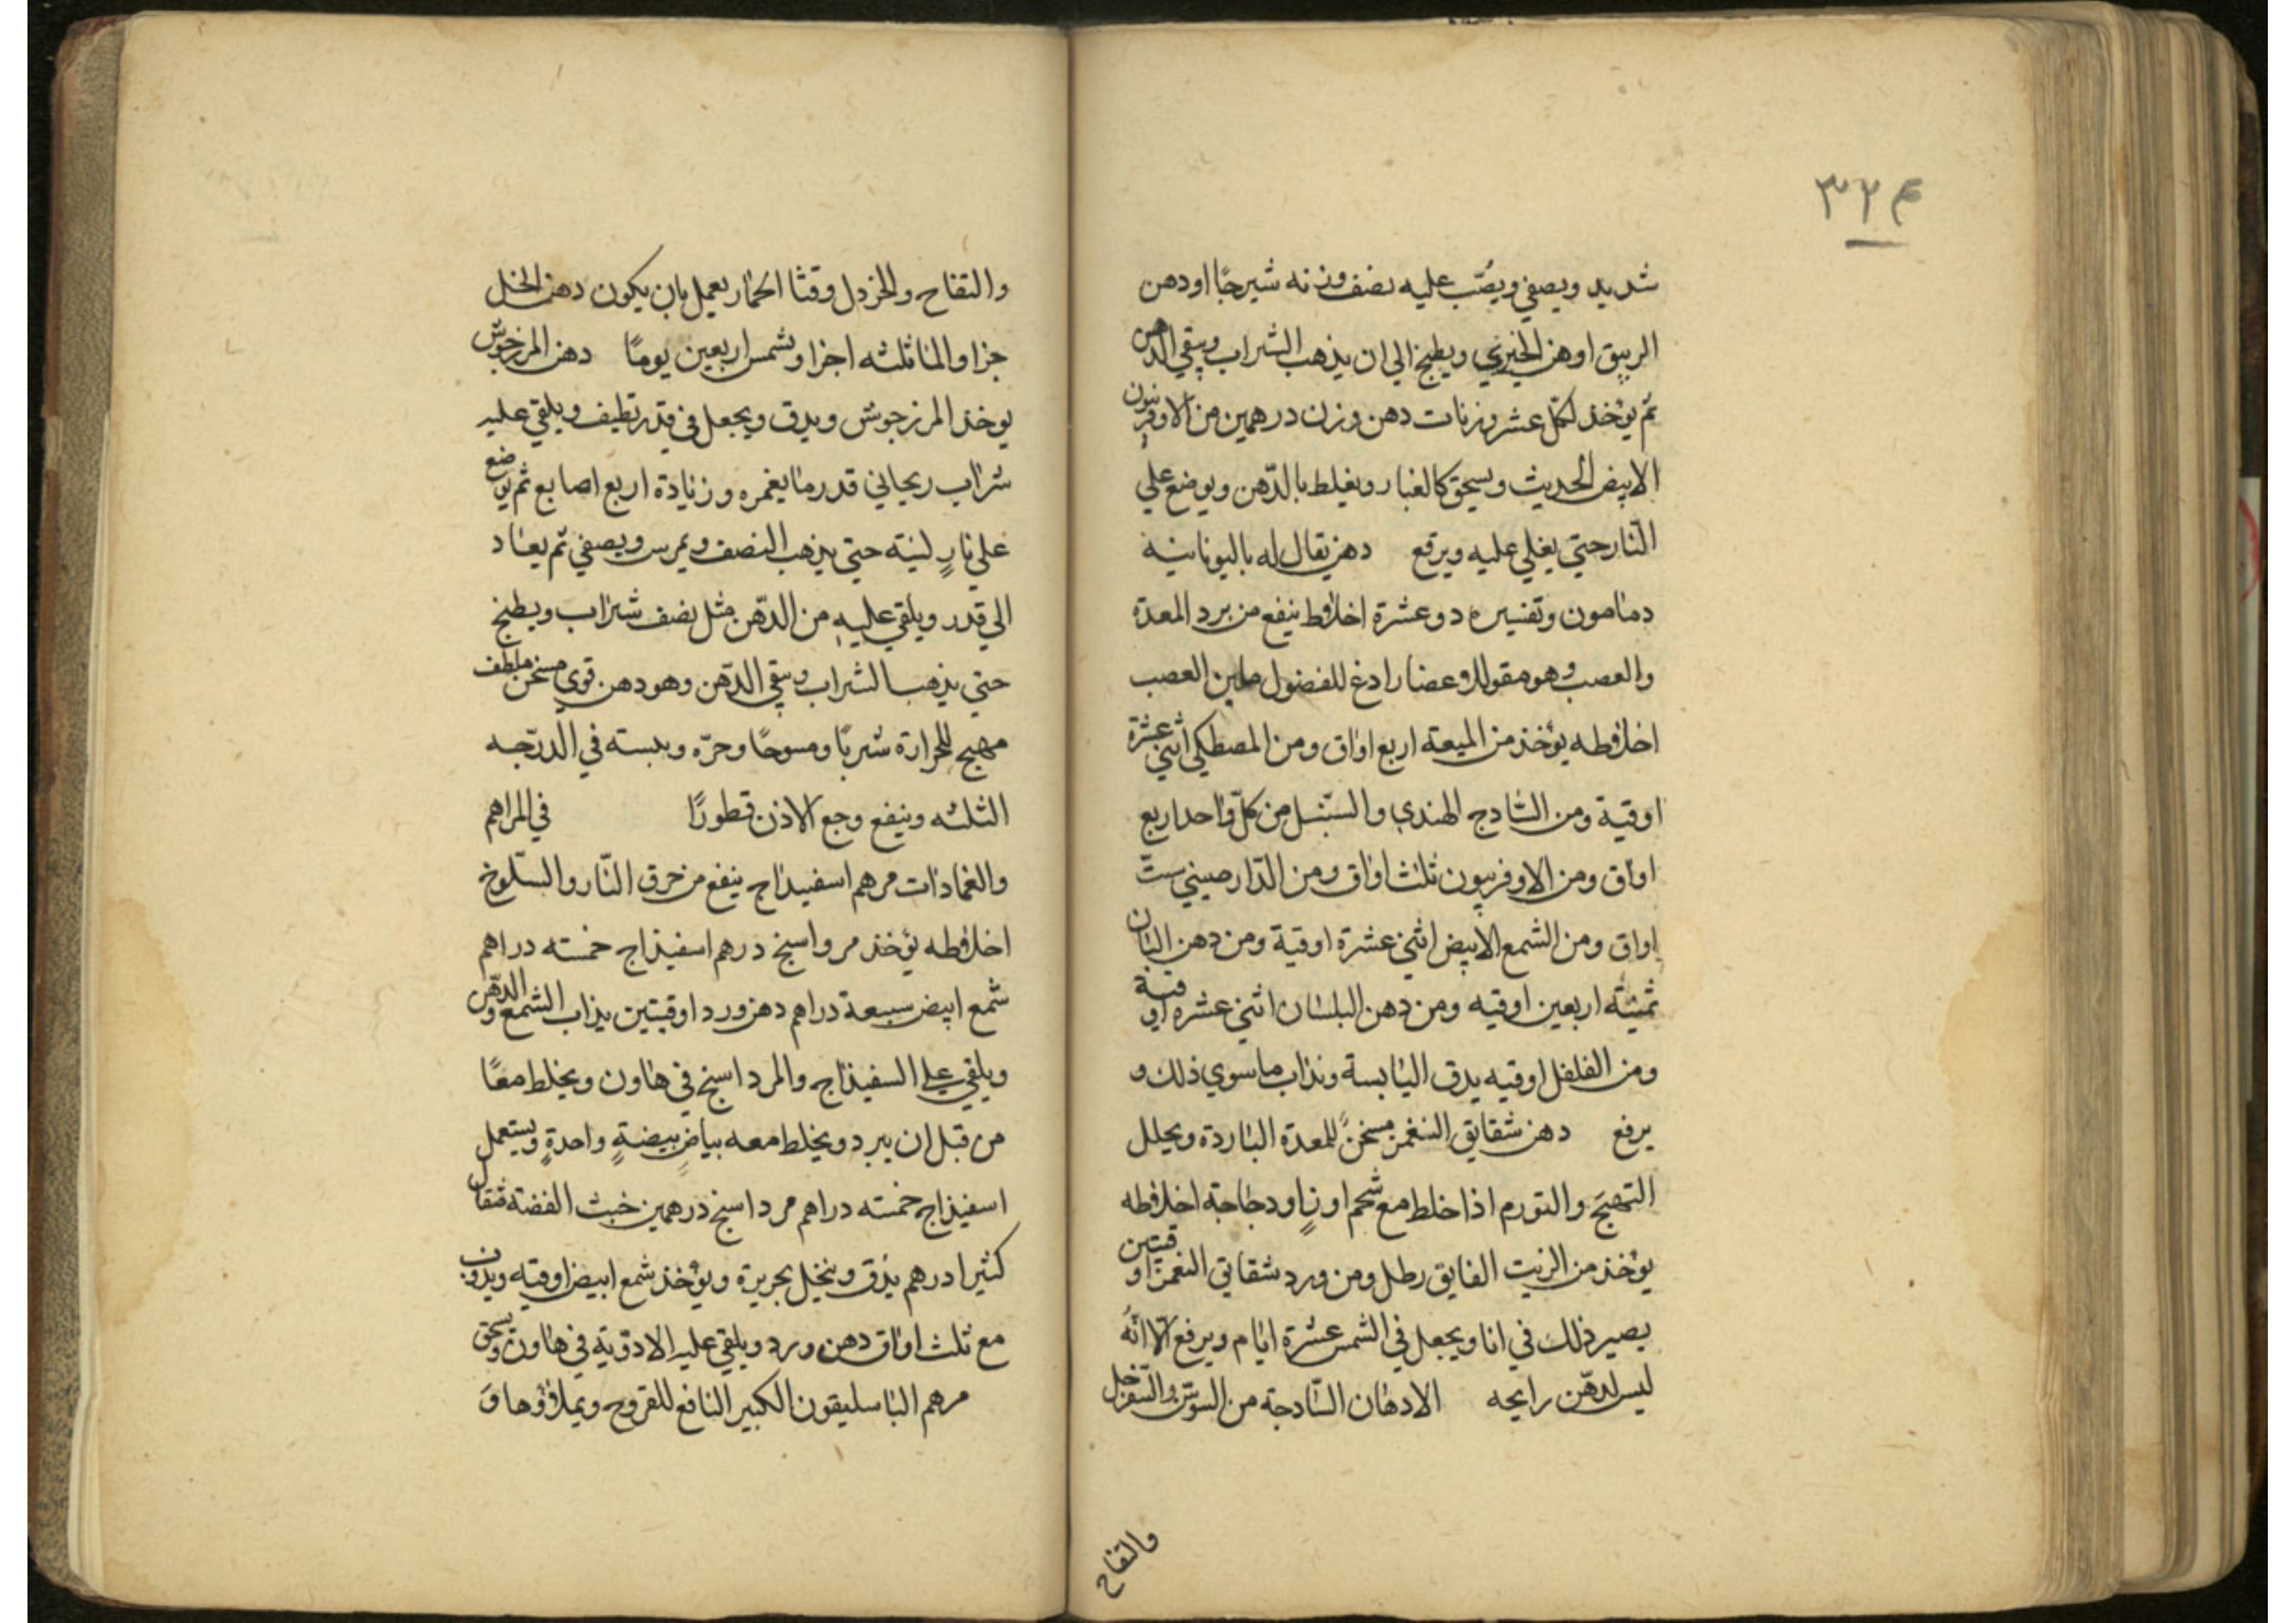 ٣٢٤
شديد ويصفي ويصّب عليه نصف وزنه شيرجًا اودهن
الزيبق اوهن الخيري ويطبخ الي ان يذهب الشراب ويبقي الدهن
ثم يؤخذ لكل عشر وزنات دهن وزن درهمين من الاوفربيون
الابيض الحديث ويسحق كالغبار ويغلط بالدّهن ويوضع علي
النار حتي يغلي عليه ويرفع دهن يقال له باليونانية
دمامون وتفسيره دوعشرة اخلاط ينفع من برد المعدة
والعصب وهو مقو للاعضا رادغ للفضول ملين العصب
اخلاطه يؤخذ من الميعة اربع اواق ومن المصطكي اثني عشرة
اوقية ومن السّادج الهندي والسّنبل من كلّ واحد اربع
اواق ومن الاوفربيون ثلث اواق ومن الدّارصيني ستّ
اواق ومن الشمع الابيض اثني عشرة اوقية ومن دهن البان
اربعين اوقيه ومن دهن البلسان اثني عشره اوقية
ومن الفلفل اوقيه يدق اليابسة ويذاب ما سوي ذلك و
يرفع دهن شقايق النغمن مسخنً للمعدة الباردة ويحلل
التهيّج والتورم اذا خلط مع شحم اوزٍ او دجاجة اخلاطه
يؤخذ من الزيت الفايق رطل ومن ورد شقاتي النغمن اوقيتين
يصير ذلك في انا ويجعل في الشمس عشرة ايام ويرفع الّا انّه
ليس لدهّن رايحه الادهان السّادجة من السوسن والسّفرجل
والتفاح
والتفاح والخردل وقثا الحمار يعمل بان يكون دهن الخل
جزا والما ثلثه اجزا ويشمس اربعين يومًا دهن المرزجوش
يوخذ المرزجوش ويدق ويجعل في قدر نظيف ويلقي عليه
شراب ريحاني قدر ما يغمره وزيادة اربع اصابع ثم يوضع
علي نارٍ لينة حتي يذهب النصف ويمرس ويصفي ثم يعاد
الي قدر ويلقي عليه من الدّهن مثل نصف شراب ويطبخ
حتي يذهب الشراب ويبقي الدّهن وهو دهن قوي مسخن ملطف
مهيج للحرارة شربًا ومسوحًا وحرّه ويبسته في الدرّجه
الثلثه وينفع وجع الاذن قطورًا في المراهم
والغمادات مرهم اسفيداج ينفع من خرق النّار والسّلوخ
اخلاطه يؤخذ مرواسنج درهم اسفيذاج خمسته دراهم
شمع ابيض سبعة دراهم دهن ورد اوقيتين يذاب الشمع والدّهن
ويلقي علي السفيذاج والمرداسنج في هاون ويخلط معًا
من قبل ان يبرد ويخلط معه بياض بيضةٍ واحدةٍ ويستعمل
اسفيذاج خمسته دراهم مرداسنج درهمين خبث الفضة مثقال
كثيرا درهم يدق وينخل بحريرة ويؤخذ شمع ابيض اوقيه ويذوب
مع ثلث اواق دهن ورد ويلقي عليه الادّوية في هاون ويسحق
مرهم الباسليقون الكبير النافع للقروح ويملاؤها وَ